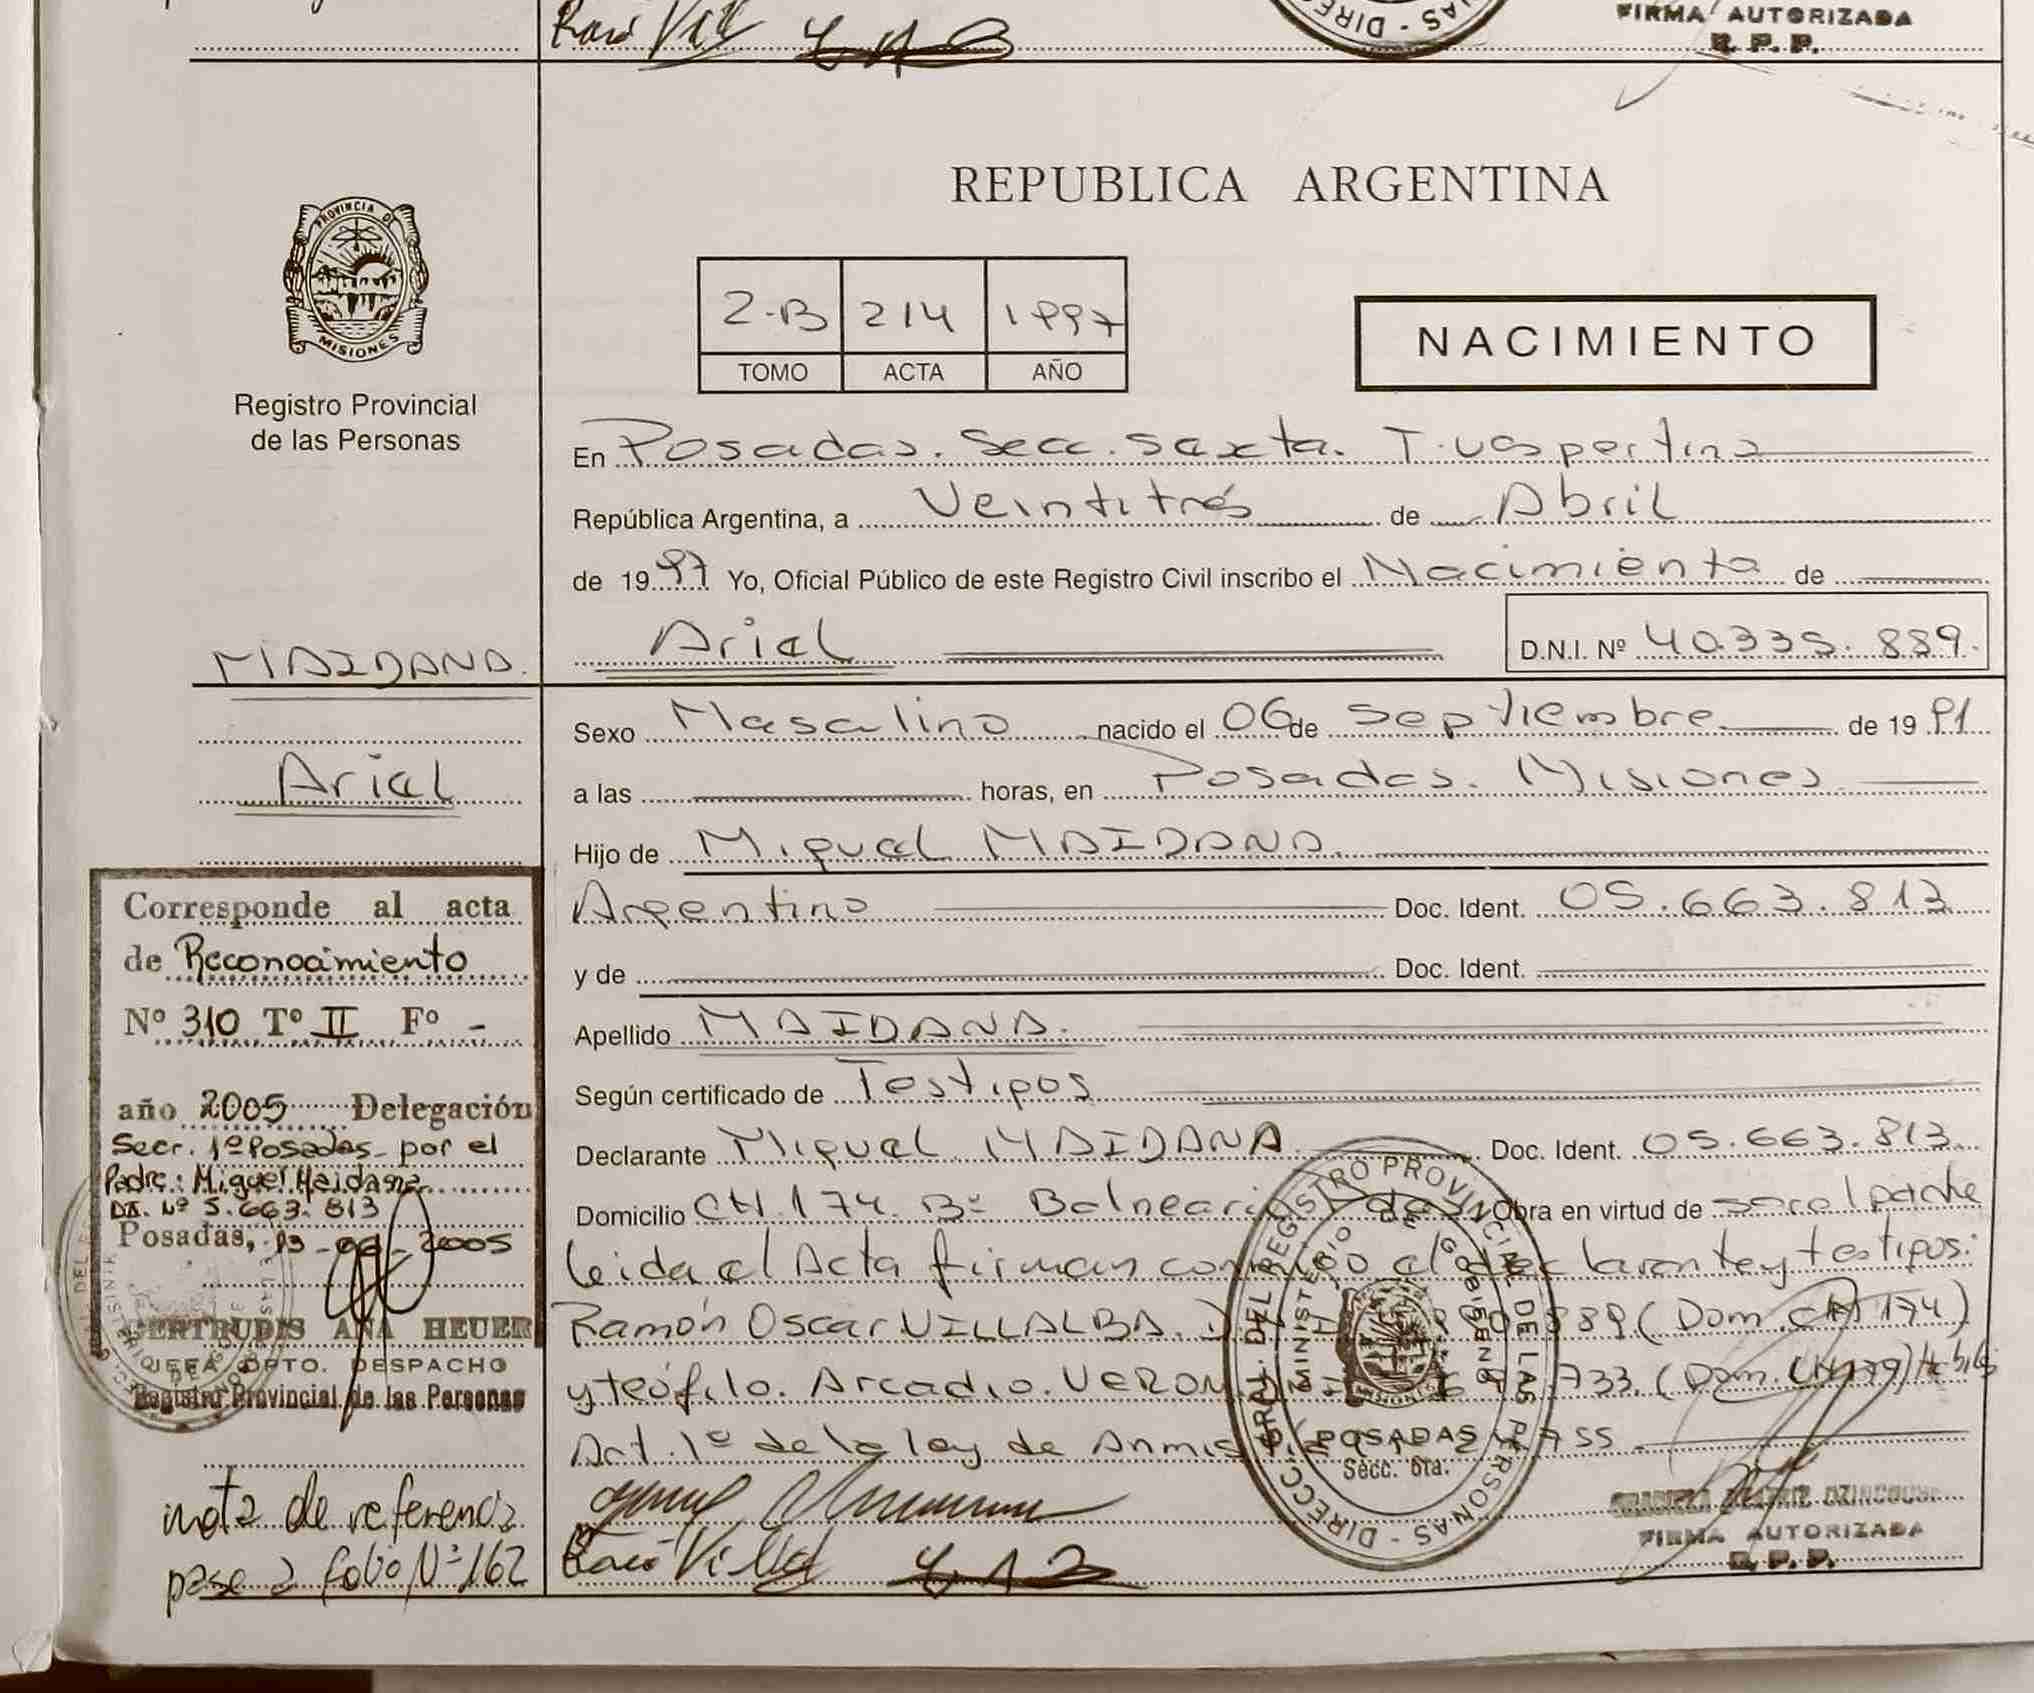 FIRMA AUTORIZADA
R. P. P.
REPUBLICA ARGENTINA
PROVINCIA DE
MISIONES
Registro Provincial
de las Personas
2-B 214 1997
TOMO ACTA AÑO
NACIMIENTO
En Posadas. Secc. Sexta. T. vespertino
República Argentina, a Veintitrés de Abril
de 1997 Yo, Oficial Público de este Registro Civil inscribo el Nacimiento de
Ariel
D.N.I. Nº 40.335.889.
MAIDANA.
Ariel
Sexo Masculino nacido el 06 de Septiembre de 1991
a las horas, en Posadas. Misiones
Hijo de Miguel MAIDANA.
Argentino Doc. Ident. 05.663.813
y de Doc. Ident.
Apellido MAIDANA.
Según certificado de Testigos
Declarante Miguel MAIDANA Doc. Ident. 05.663.813
Domicilio CH. 174. Bº Balneario Obra en virtud de ser el padre
leida el Acta firman conmigo el declarante y testigos:
Ramón Oscar VILLALBA. (Dom. CH 174)
y teófilo. Arcadio. VERON 733. (Dom. CH 179) Habiles
Art. 1º de la ley de Amnistia 755
Corresponde al acta
de Reconocimiento
Nº 310 Tº II Fº -
año 2005 Delegación
Secr. 1º Posadas por el
Padre: Miguel Maidana
DI. Nº 5.663.813
Posadas, 2005
GERTRUDIS ANA HEUER
JEFA DPTO. DESPACHO
Registro Provincial de las Personas
nota de referencia
pase a folio Nº 162
DIRECC. GRAL. DEL REGISTRO PROVINCIAL DE LAS PERSONAS
MINISTERIO DE GOBIERNO
POSADAS
Secc. 6ta.
FIRMA AUTORIZADA
R. P. P.